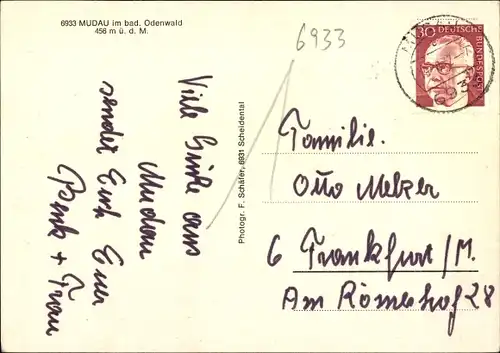 6933 MUDAU im bad. Odenwald
456 m ü. d. M.
6933
30
DEUTSCHE BUNDESPOST
Viele Grüße aus
Mudau
sendet Euch Euer
+ Frau
Photogr. F. Schäfer, 6931 Scheidental
Familie.
Otto Melzer
6 Frankfurt/M.
Am Römerhof 28